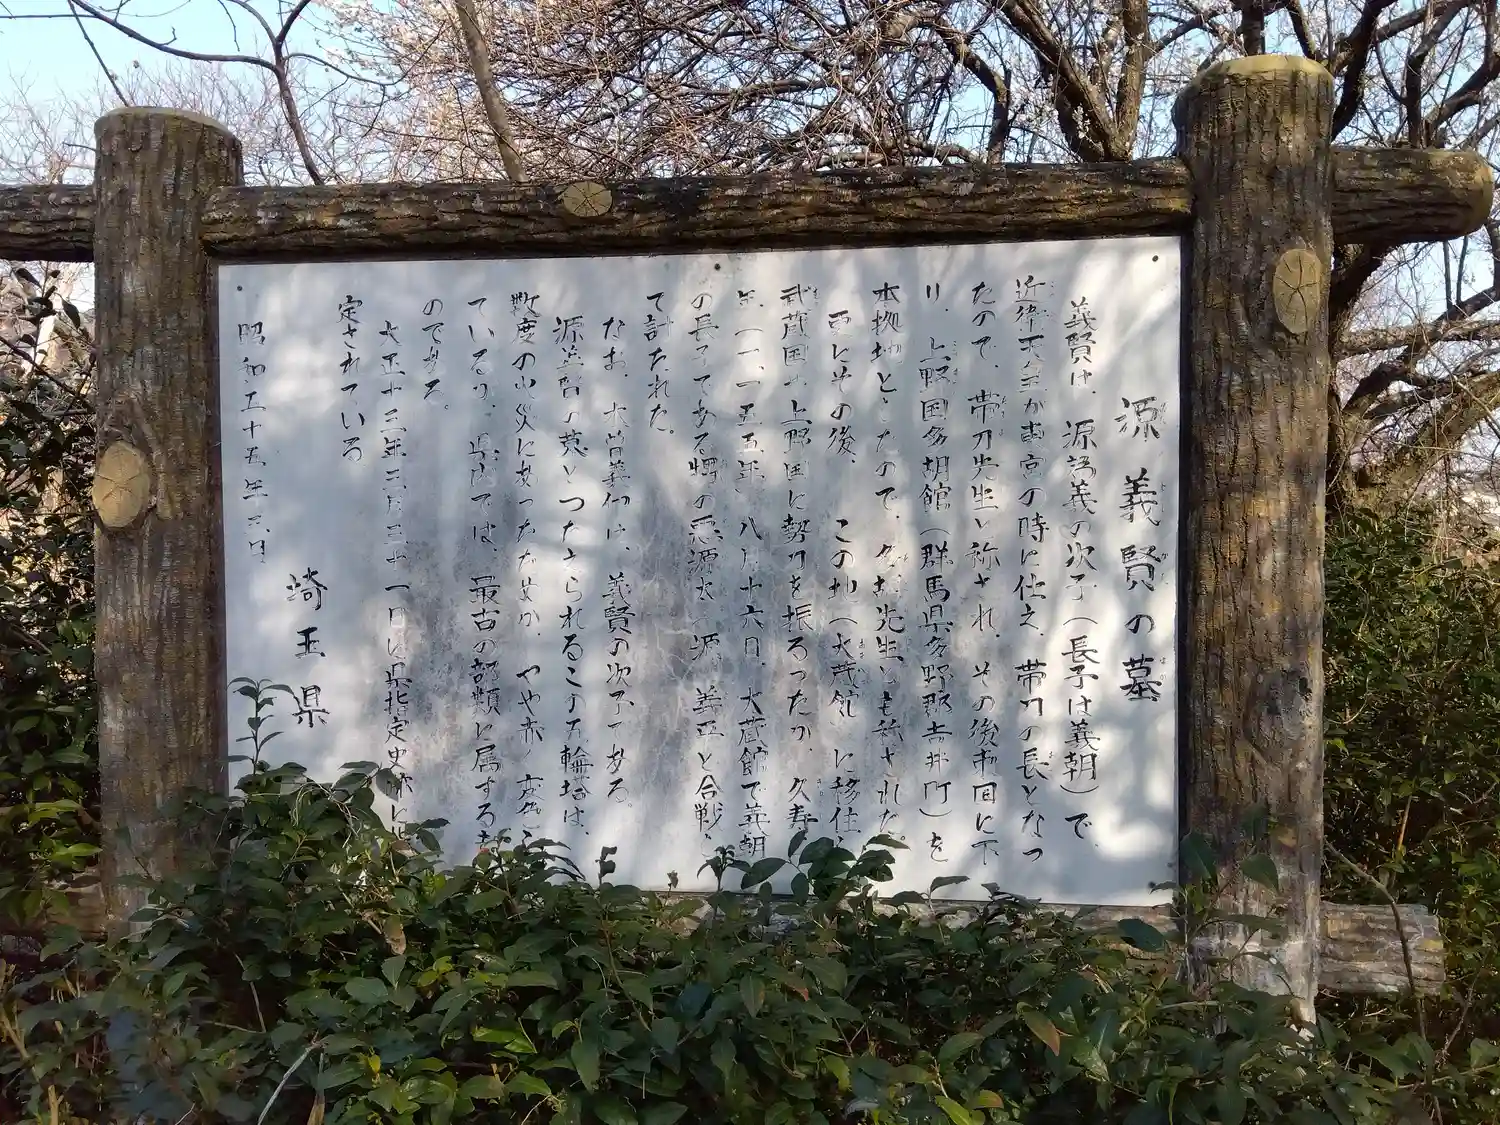 源義賢の墓
義賢は、源為義の次子(長子は義朝)で、
近衛天皇が東宮の時に仕え、帯刀の長となっ
たので、帯刀先生と称され、その後東国に下
り、上野国多胡館(群馬県多野郡吉井町)を
本拠地としたので、多胡先生とも称された。
西しその後、この地(大蔵館)に移住、
武蔵国・上野国に勢力を振るったが、久寿
年(一一五五年)八月十六日、大蔵館で義朝
の長子である甥の悪源太(源義平)と合戦、
て討たれた。
なお、木曽義仲は、義賢の次子である。
源義賢の墓とつたえられるこの五輪塔は、
数度の火災にあったためか、やや赤く変色し
ているが、県内では、最古の部類に属するも
のである。
大正十三年三月三十一日に県指定史跡に
定されている
埼玉県
昭和五十五年三月